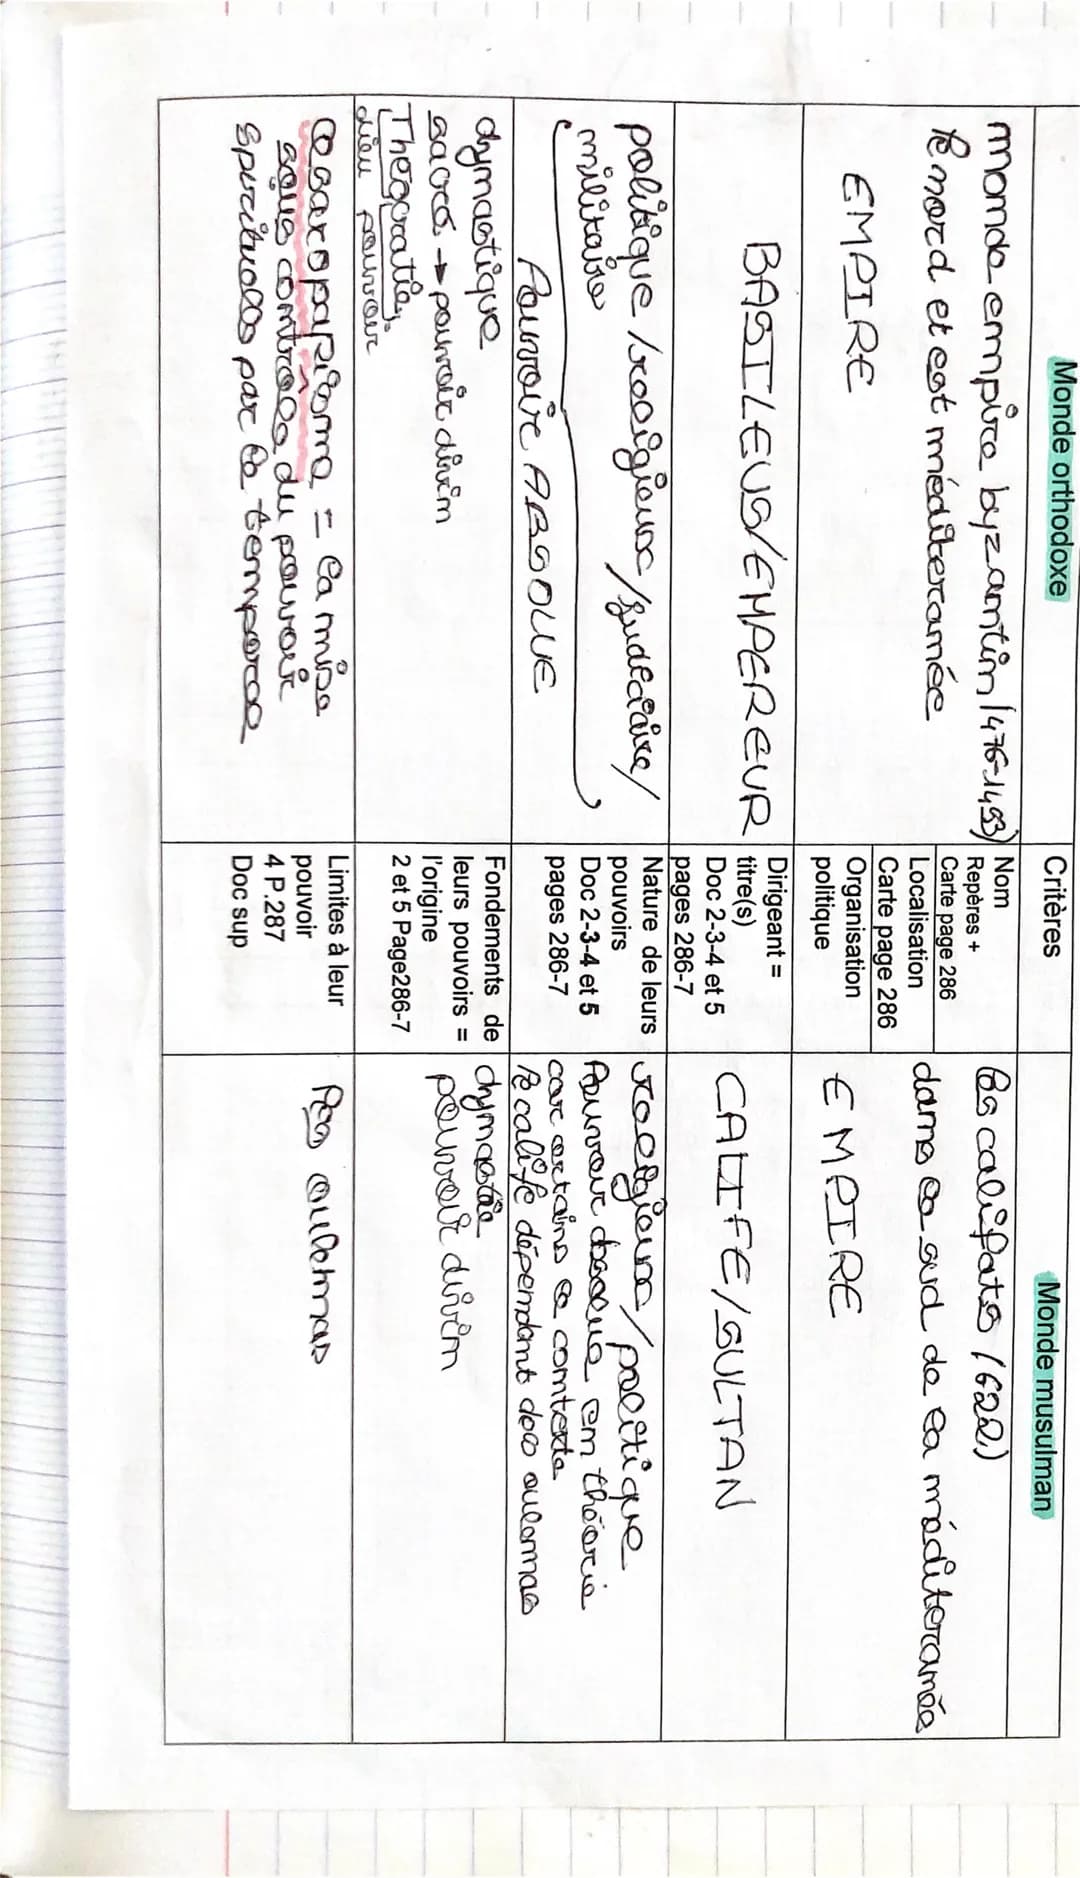 Monde orthodoxe
Critères
Monde musulman
monde empire byzantin (476-1453)
Nom
Repères +
Carte page 286
les califats (622)
le nord et est méditerranée
Localisation
Carte page 286
dans le sud de la méditeranée
EMPIRE
Organisation
politique
EMPIRE
BASILEUS/EMPEREUR
Dirigeant =
titre(s)
Doc 2-3-4 et 5
pages 286-7
CALIFE/SULTAN
politique/religieux/judiciaire/
militaire
Pouvoir ABSOLUE
Nature de leurs
pouvoirs
Doc 2-3-4 et 5
pages 286-7
religieux/politique
Pouvoir absolue en théorie
car certains le conteste
le calife dépendent des oulemas
dynastique
sacré → pouvoir divin
Théocratie
dieu pouvoir
Fondements de
leurs pouvoirs =
l'origine
2 et 5 Page286-7
dynastie
pouvoir divin
cesaropapisme = la mise
sous contrôle du pouvoir
spirituelle par le temporel
Limites à leur
pouvoir
4 P.287
Doc sup
Les oulemas